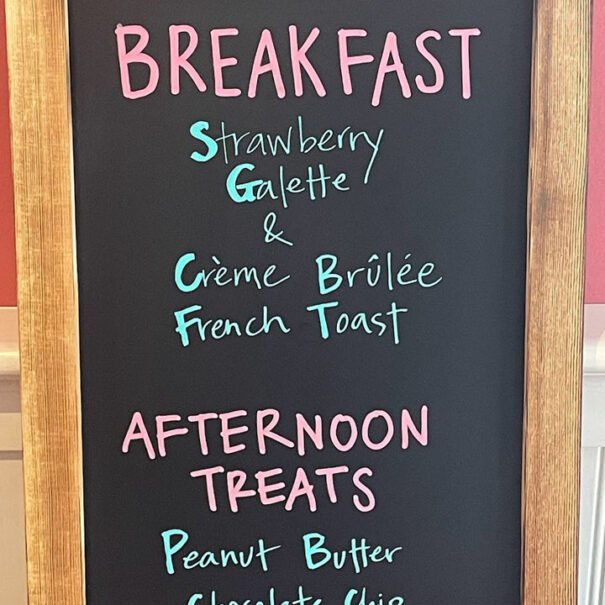 BREAKFAST
Strawberry
Galette
&
Crème Brûlée
French Toast
AFTERNOON
TREATS
Peanut Butter
Chocolate Chip